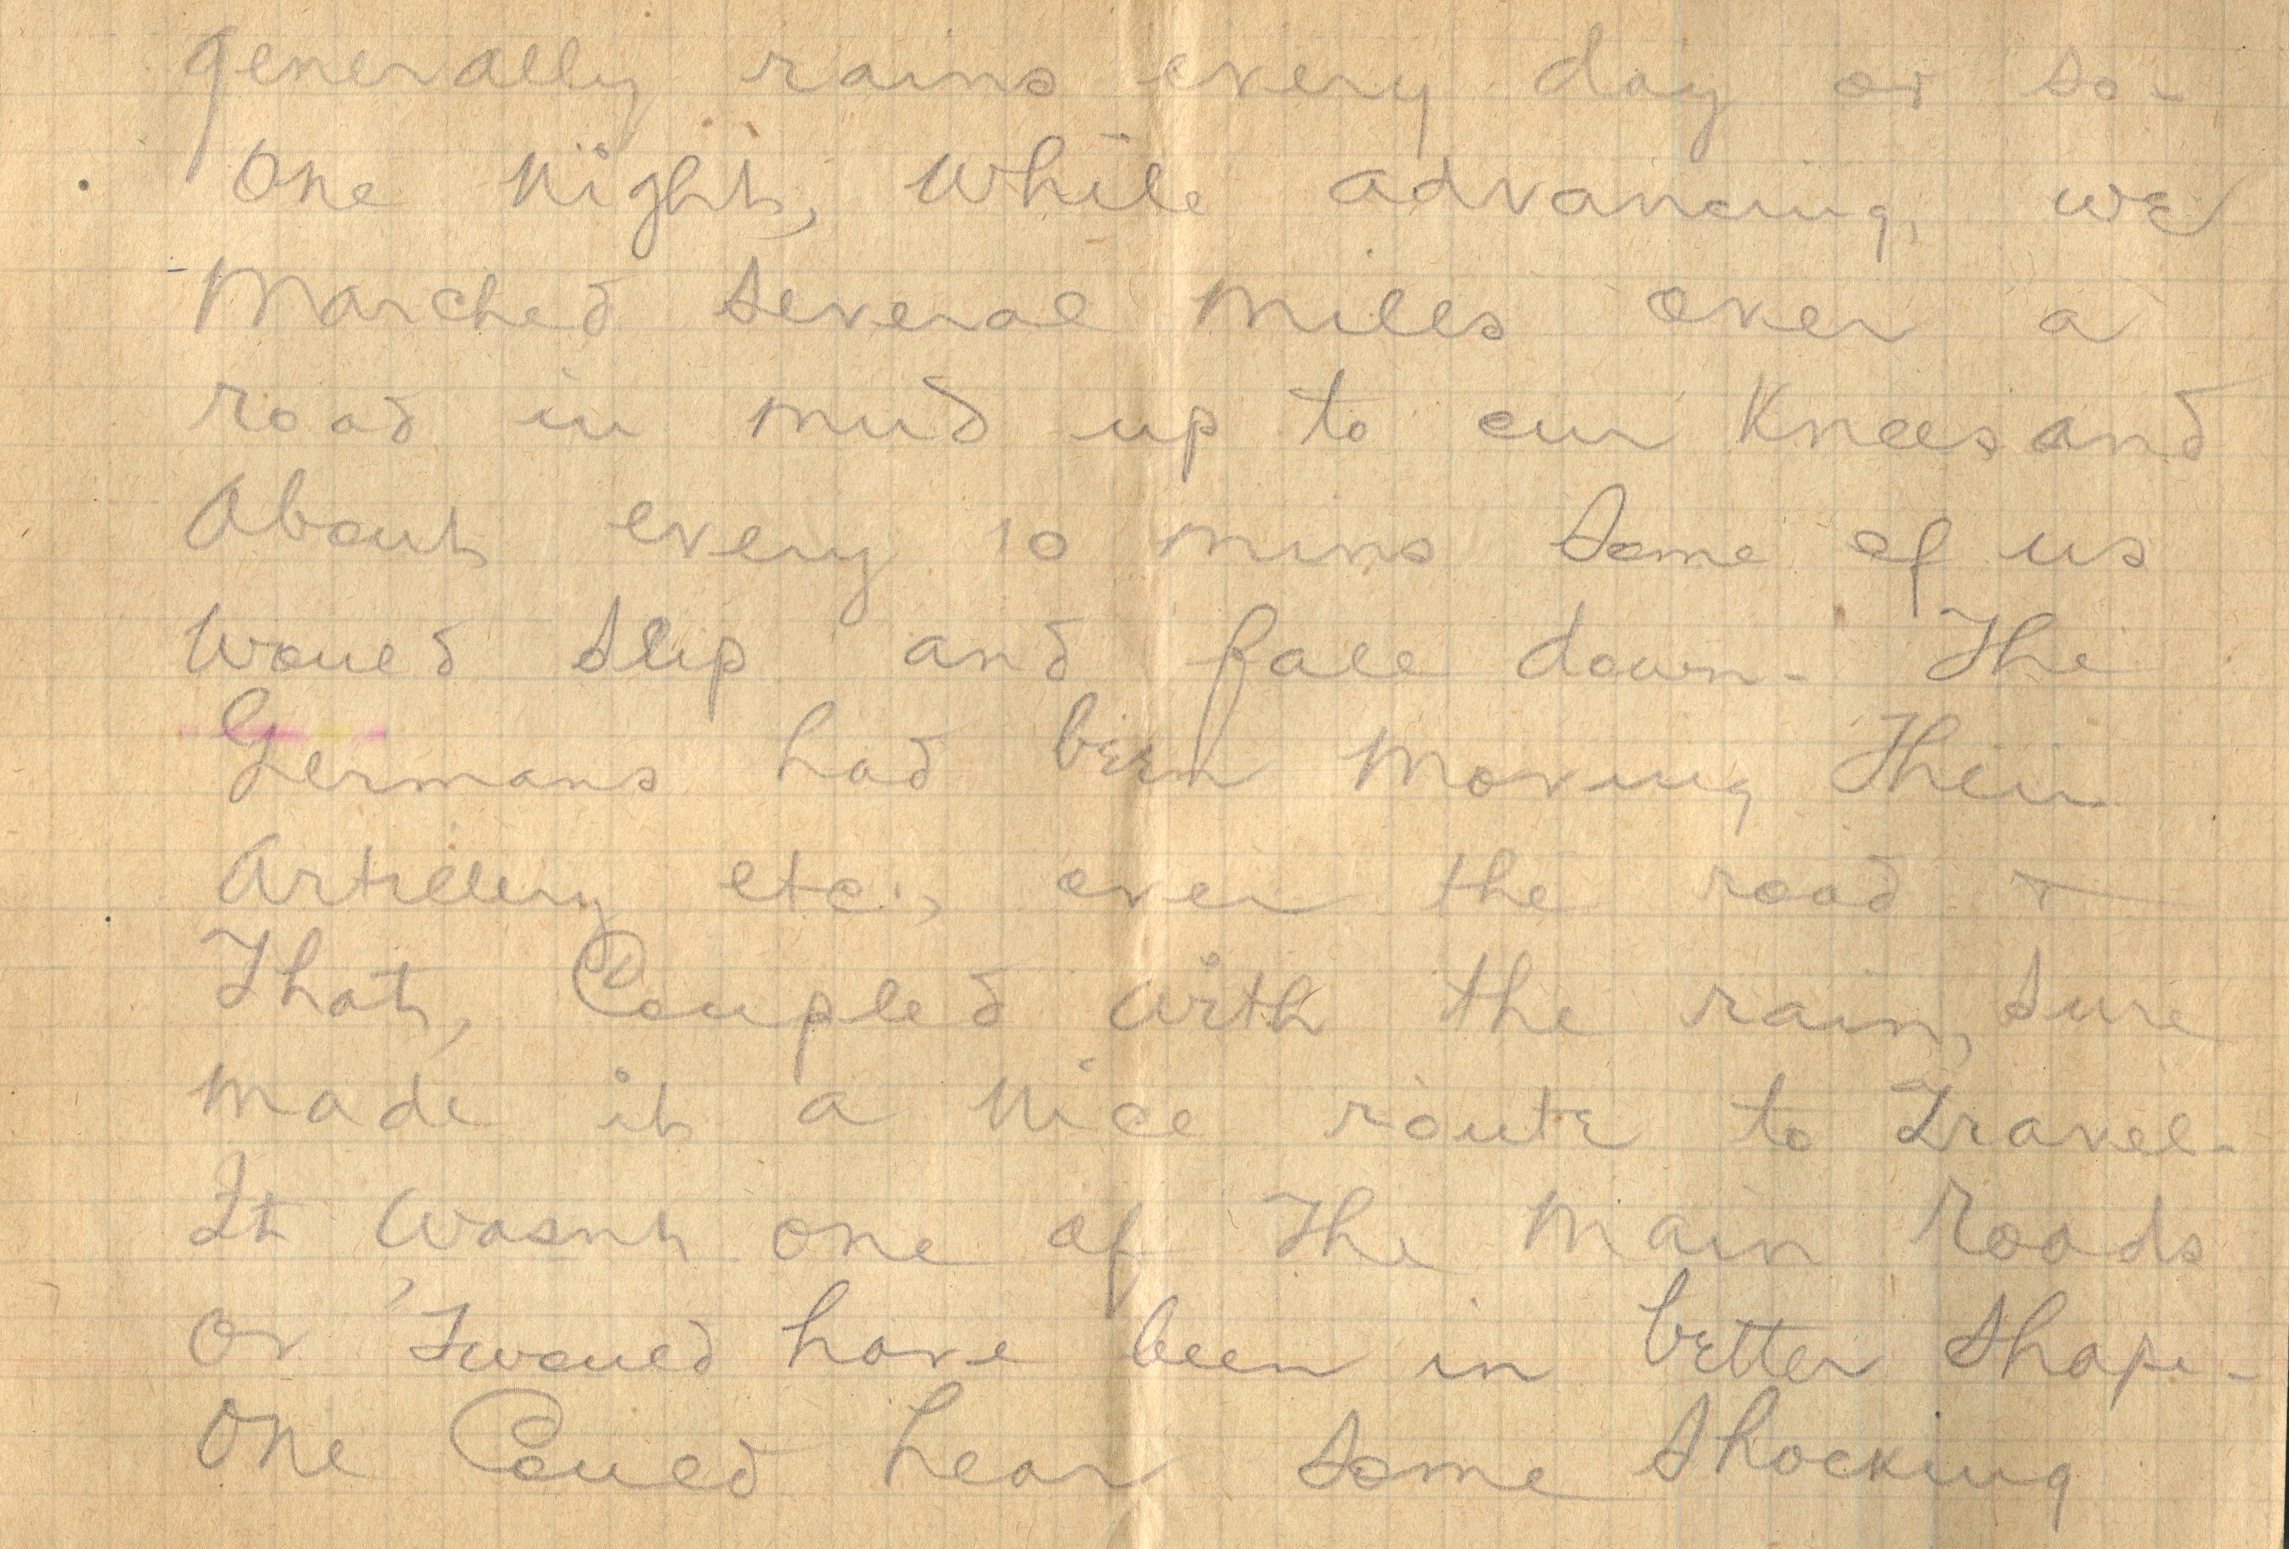 generally rains every day or so-
One Night, while advancing, we
Marched several miles over a
road in mud up to our Knees and
About every 10 mins some of us
would slip and fall down- The
Germans had been moving Their
Artillery etc., over the road &
That, Coupled with the rain, sure
made it a Nice route to Travel-
It wasn't one of The Main Roads
or 'twould have been in better shape-
One Could hear some shocking